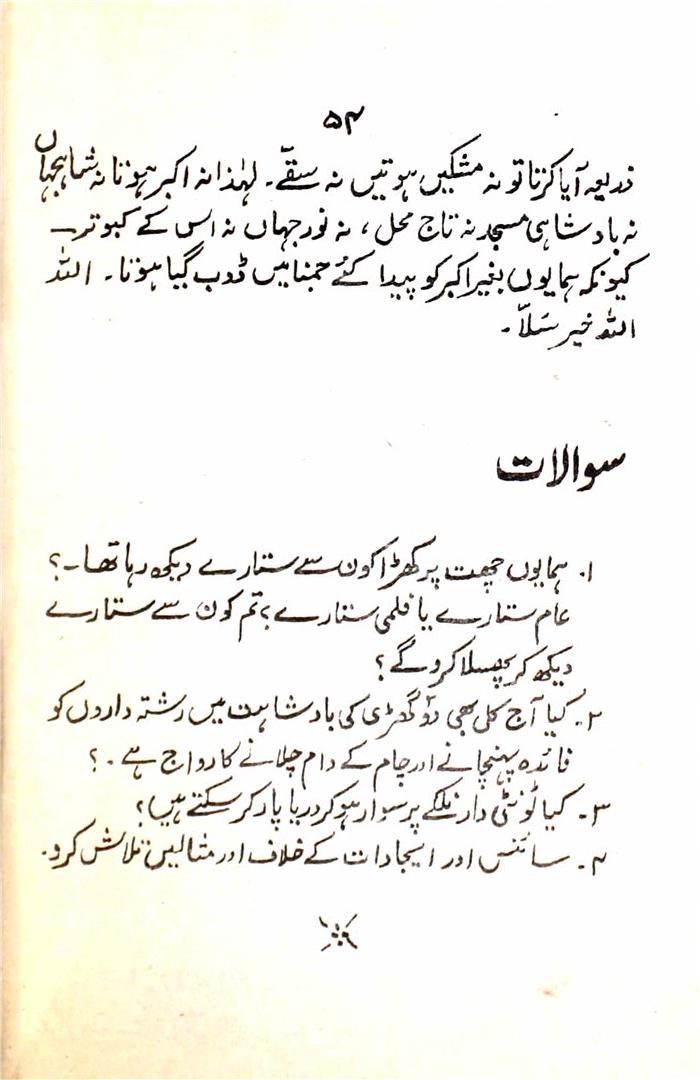 ۵۴
ذریعہ آیا کرتا تو نہ مشکیں ہوتیں نہ سقّے۔ لہٰذا نہ اکبر ہوتا نہ شاہجہاں
نہ بادشاہی مسجد نہ تاج محل ، نہ نور جہاں نہ اس کے کبوتر ــ
کیونکہ ہمایوں بغیر اکبر کو پیدا کئے جمنا میں ڈوب گیا ہوتا۔ اللہ
اللہ خیر سَلّا۔
سوالات
۱۔ ہمایوں چھت پر کھڑا کون سے ستارے دیکھ رہا تھا۔؟
عام ستارے یا فلمی ستارے ؟ تم کون سے ستارے
دیکھ کر پھسلا کرو گے ؟
۲۔ کیا آج کل بھی دو گھڑی کی بادشاہت میں رشتہ داروں کو
فائدہ پہنچانے اور چام کے دام چلانے کا رواج ہے ۔ ؟
۳۔ کیا ٹونٹی دار نلکے پر سوار ہو کر دریا پار کر سکتے ہیں؟
۴۔ سائنس اور ایجادات کے خلاف اور مثالیں تلاش کرو۔